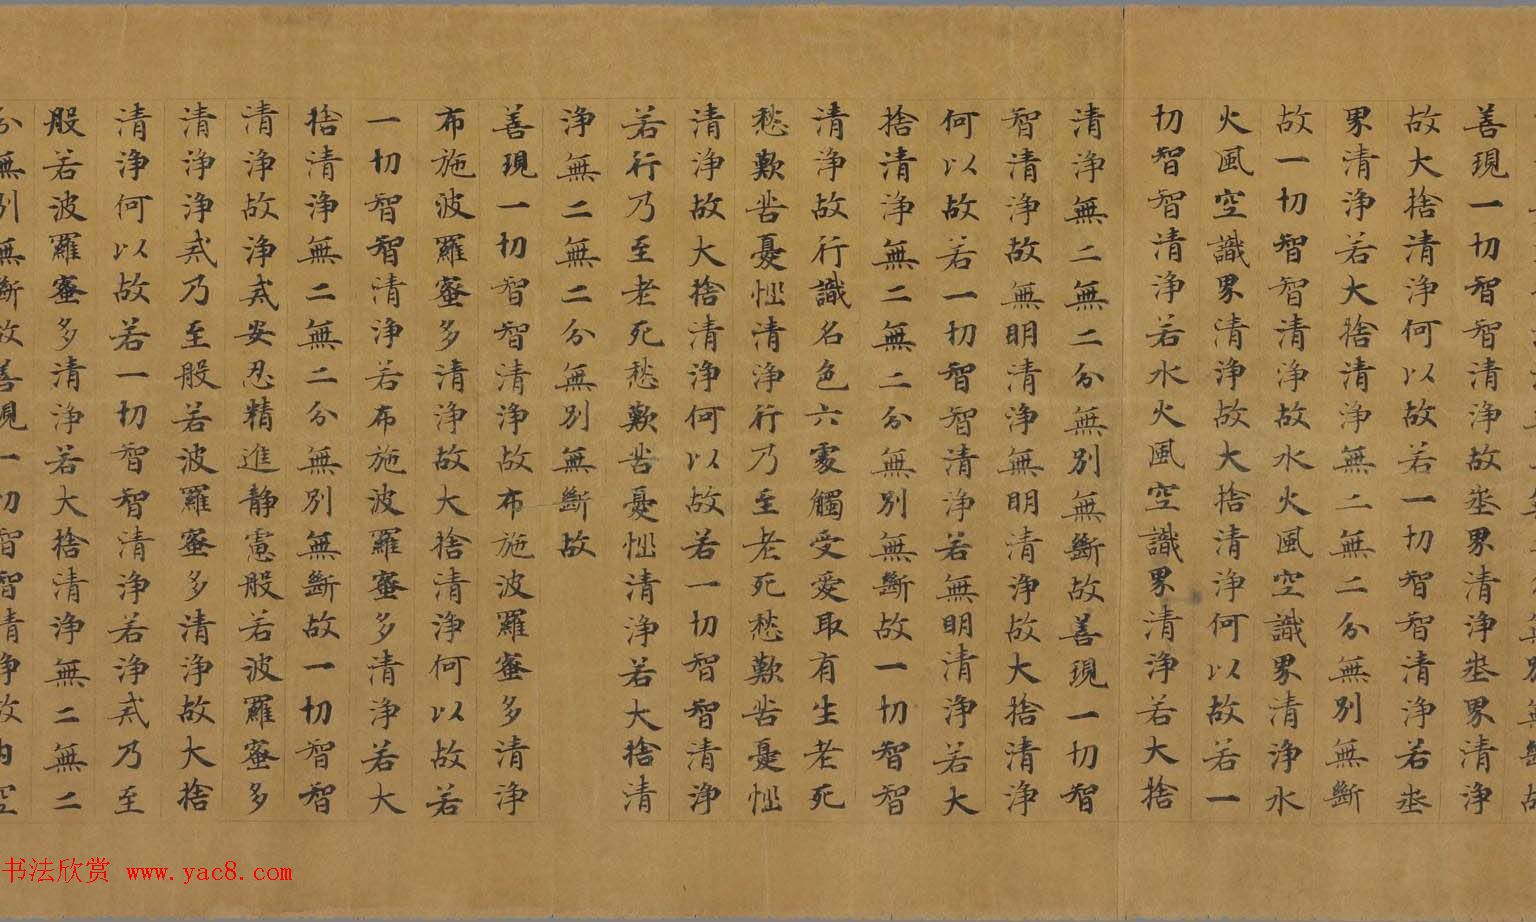 善現一切智智清浄故埊界清浄埊界清浄
故大捨清浄何以故若一切智智清浄若埊
界清浄若大捨清浄無二無二分無別無斷
故一切智智清浄故水火風空識界清浄水
火風空識界清浄故大捨清浄何以故若一
切智智清浄若水火風空識界清浄若大捨
清浄無二無二分無別無斷故善現一切智
智清浄故無明清浄無明清浄故大捨清浄
何以故若一切智智清浄若無明清浄若大
捨清浄無二無二分無別無斷故一切智智
清浄故行識名色六處觸受愛取有生老死
愁歎苦憂惱清浄行乃至老死愁歎苦憂惱
清浄故大捨清浄何以故若一切智智清浄
若行乃至老死愁歎苦憂惱清浄若大捨清
浄無二無二分無別無斷故
善現一切智智清浄故布施波羅蜜多清浄
布施波羅蜜多清浄故大捨清浄何以故若
一切智智清浄若布施波羅蜜多清浄若大
捨清浄無二無二分無別無斷故一切智智
清浄故浄戒安忍精進静慮般若波羅蜜多
清浄浄戒乃至般若波羅蜜多清浄故大捨
清浄何以故若一切智智清浄若浄戒乃至
般若波羅蜜多清浄若大捨清浄無二無二
分無別無斷故善現一切智智清浄故内空
书法欣赏 www.yac8.com